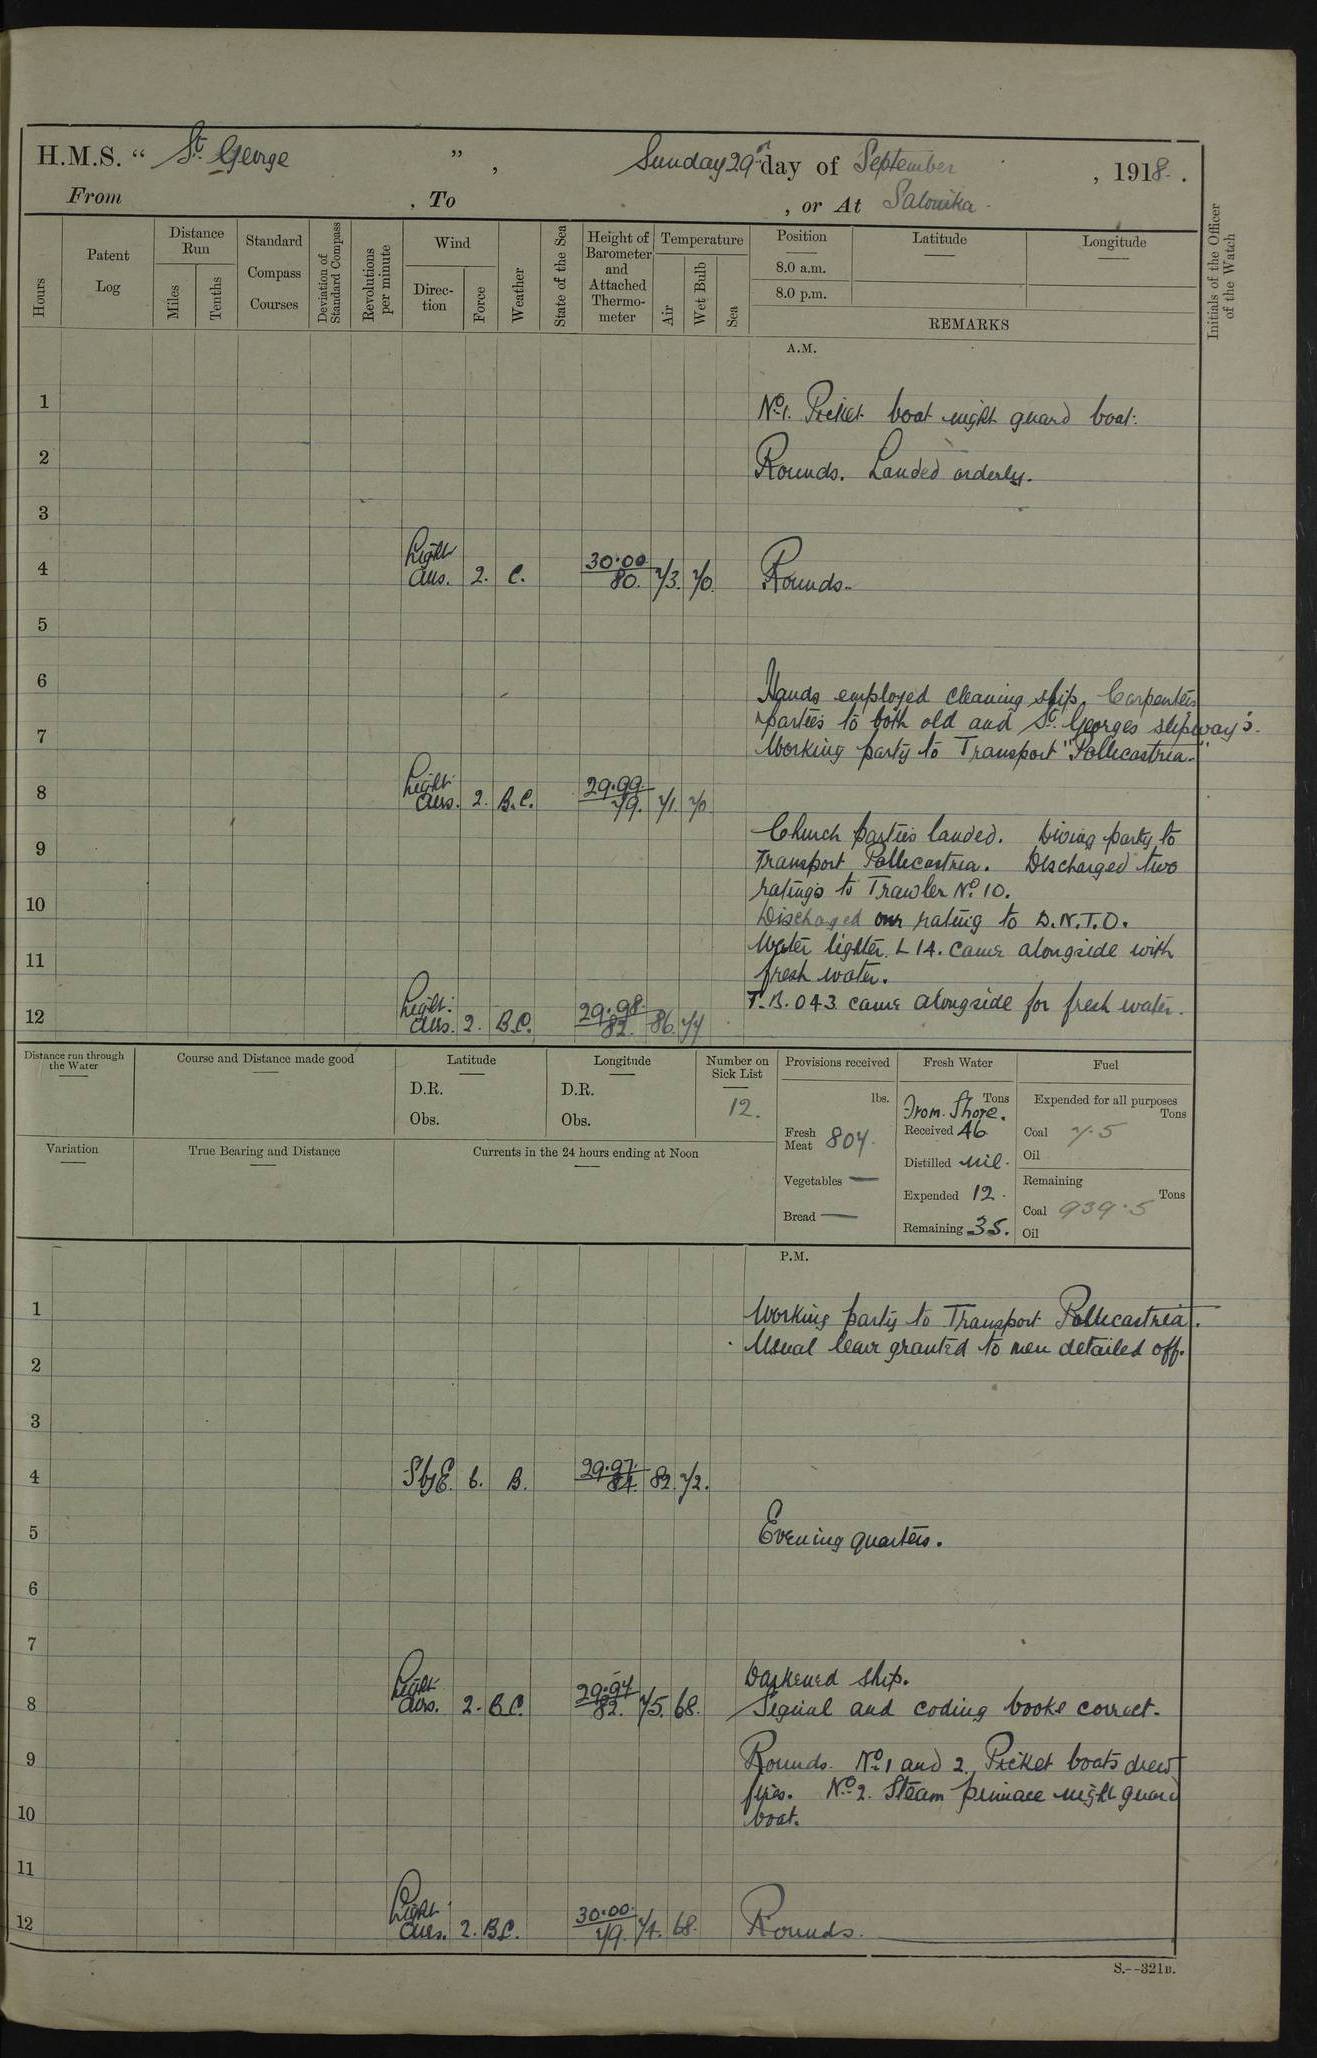 H.M.S. “ St. George ” , Sunday 29th day of September , 1918.
From , To , or At Salonika.
Hours
Patent Log
Distance Run
Miles
Tenths
Standard Compass Courses
Deviation of Standard Compass
Revolutions per minute
Wind
Direction
Force
Weather
State of the Sea
Height of Barometer and Attached Thermometer
Temperature
Air
Wet Bulb
Sea
Position
8.0 a.m.
8.0 p.m.
Latitude
Longitude
REMARKS
Initials of the Officer of the Watch
A.M.
1 No. 1. Picket boat night guard boat.
2 Rounds. Landed orderly.
3
4 Light airs. 2. C. 30.00 80. 73. 70. Rounds.
5
6 Hands employed cleaning ship. Carpenters
parties to both old and St. Georges slipway's.
7 Working party to Transport "Pollecastria."
8 Light airs. 2. B.C. 29.99 79. 71. 70.
Church parties landed. Diving party to
9 Transport Pollecastria. Discharged two
ratings to Trawler No. 10.
10 Discharged one rating to D.N.T.O.
Water lighter L 14. came alongside with
11 fresh water.
T.B. 043 came alongside for fresh water.
12 Light airs. 2. B.C. 29.98 82. 86. 77
Distance run through the Water
Course and Distance made good
Latitude
D.R.
Obs.
Longitude
D.R.
Obs.
Number on Sick List
12.
Variation
True Bearing and Distance
Currents in the 24 hours ending at Noon
Provisions received
lbs.
Fresh Meat 807.
Vegetables —
Bread —
Fresh Water
Tons
From Shore.
Received 46
Distilled Nil.
Expended 12.
Remaining 35.
Fuel
Expended for all purposes
Tons
Coal 7.5
Oil
Remaining
Tons
Coal 939.5
Oil
P.M.
1 Working party to Transport Pollecastria.
Usual leave granted to men detailed off.
2
3
4 S by E. 6. B. 29.97. 84. 82. 72.
5 Evening quarters.
6
7
Darkened ship.
8 Light airs. 2. B.C. 29.97 82. 75. 68. Signal and coding books correct.
9 Rounds. No. 1 and 2. Picket boats drew
fires. No. 2. Steam pinnace night guard
10 boat.
11
12 Light airs. 2. B.C. 30.00. 79. 74. 68. Rounds.
S.--321B.